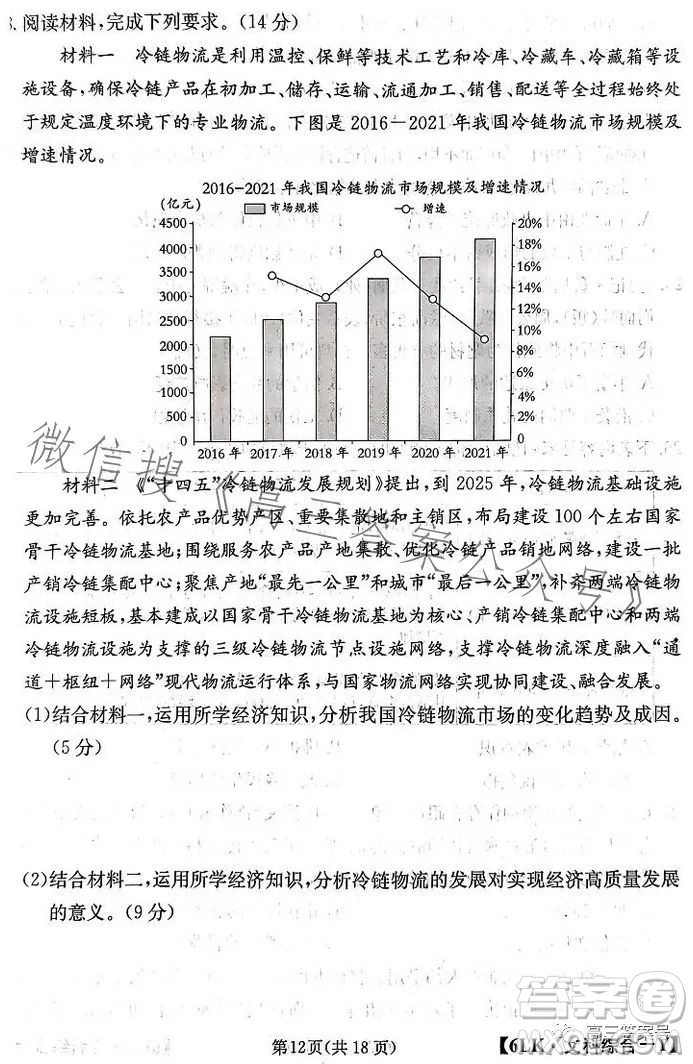 3.阅读材料,完成下列要求。(14分)
材料一 冷链物流是利用温控、保鲜等技术工艺和冷库、冷藏车、冷藏箱等设
施设备,确保冷链产品在初加工、储存、运输、流通加工、销售、配送等全过程始终处
于规定温度环境下的专业物流。下图是2016-2021年我国冷链物流市场规模及
增速情况。
2016-2021年我国冷链物流市场规模及增速情况
(亿元)
市场规模 增速
4500 20%
4000 18%
3500 16%
3000 14%
2500 12%
2000 10%
1500 8%
1000 6%
500 4%
0 2%
0%
2016年 2017年 2018年 2019年 2020年 2021年
材料二 《“十四五”冷链物流发展规划》提出,到2025年,冷链物流基础设施
更加完善。依托农产品优势产区、重要集散地和主销区,布局建设100个左右国家
骨干冷链物流基地;围绕服务农产品产地集散、优化冷链产品销地网络,建设一批
产销冷链集配中心;聚焦产地“最先一公里”和城市“最后一公里”,补齐两端冷链物
流设施短板,基本建成以国家骨干冷链物流基地为核心、产销冷链集配中心和两端
冷链物流设施为支撑的三级冷链物流节点设施网络,支撑冷链物流深度融入“通
道+枢纽+网络”现代物流运行体系,与国家物流网络实现协同建设、融合发展。
(1)结合材料一,运用所学经济知识,分析我国冷链物流市场的变化趋势及成因。
(5分)
(2)结合材料二,运用所学经济知识,分析冷链物流的发展对实现经济高质量发展
的意义。(9分)
第12页(共18页)
【6LK·文科综合一Y】
微信搜《高三答案公众号》
高三答案号
答案圈
MXQE.COM